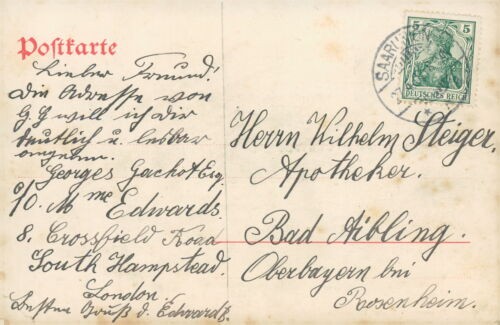 Postkarte
Lieber Freund!
Die Adresse von
G. G. will ich dir
deutlich u. lesbar
angeben.
Georges Gachot Esq.
c/o. Mme Edwards.
8. Crossfield Road
South Hampstead.
London.
Besten Gruß d. Edward
5 5
DEUTSCHES REICH
SAARLOUIS
Herrn Wilhelm Steiger,
Apotheker.
Bad Aibling.
Oberbayern bei
Rosenheim.